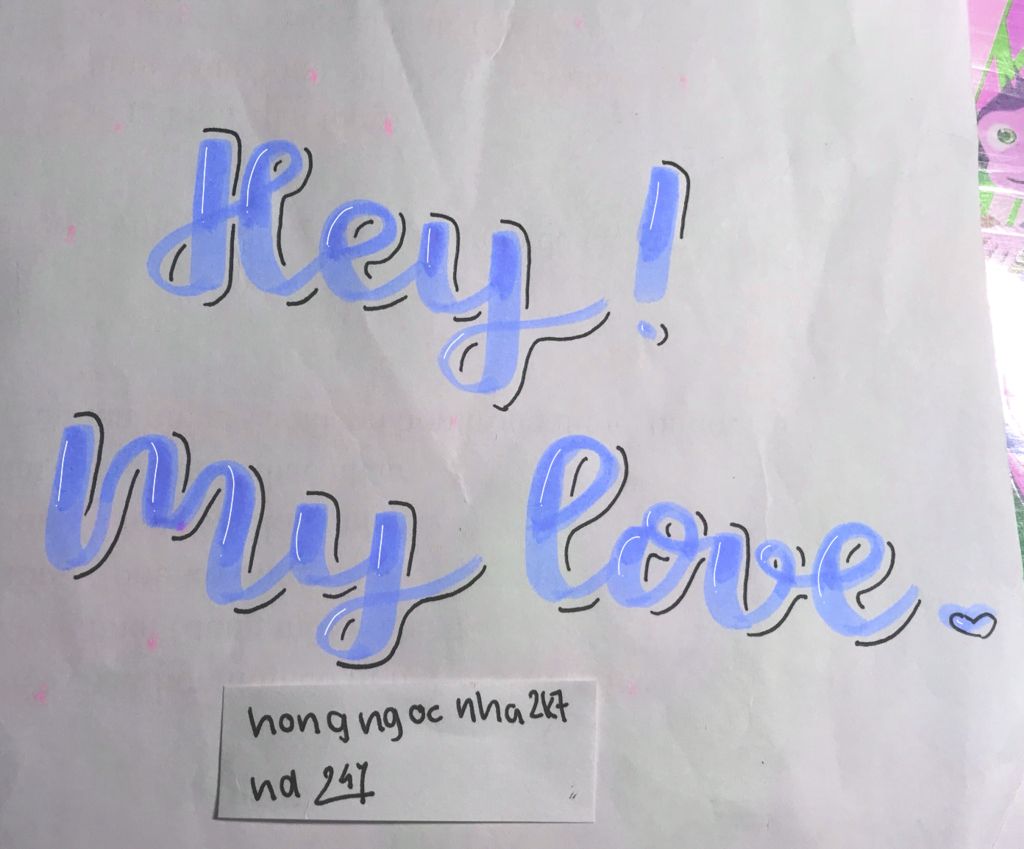 Hey!
My love.
hongngoc nha2k7
nd 247